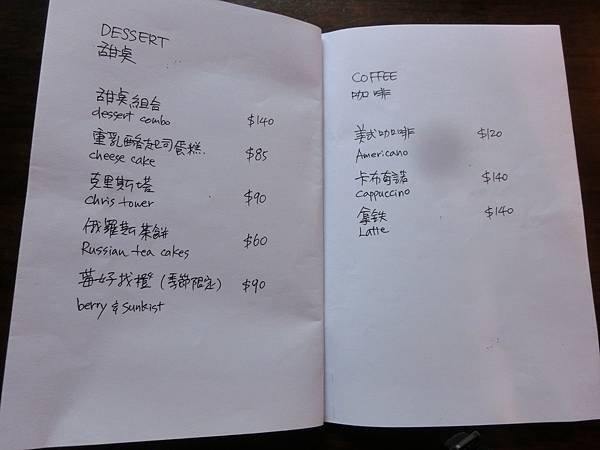 DESSERT
甜桌
甜桌組合 $140
dessert combo
重乳酪起司蛋糕. $85
cheese cake
克里斯塔 $90
Chris tower
俄羅斯茶餅 $60
Russian tea cakes
莓好找橙 (季節限定) $90
berry & sunkist
COFFEE
咖啡
美式咖啡 $120
Americano
卡布奇諾 $140
Cappuccino
拿鉄 $140
Latte